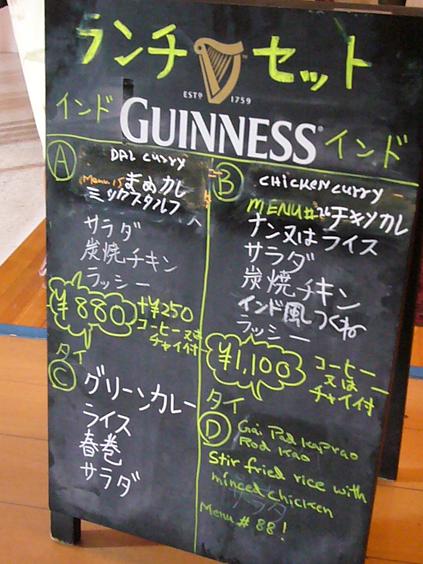 ランチ セット
ESTD 1759
GUINNESS
インド
インド
A
DAL CURRY
Menu 15 まめカレ
ミックスタルフ
サラダ
炭焼チキン
ラッシー
¥880
+¥250
コーヒー又は
チャイ付
B
CHICKEN CURRY
MENU# チキンカレ
ナン又はライス
サラダ
炭焼チキン
インド風つくね
ラッシー
¥1,100
コーヒー
又は
チャイ付
タイ
C
グリーンカレー
ライス
春巻
サラダ
タイ
D
Gai Pad Kaprao
Rod Kao
Stir fried rice with
minced chicken
サラダ
Menu # 88!